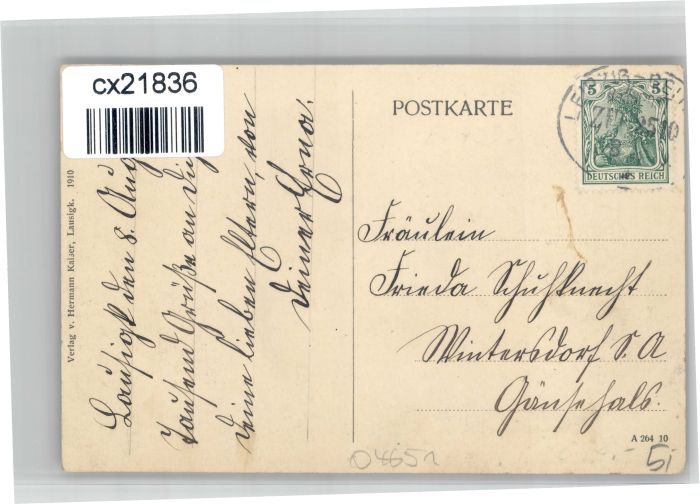 cx21836
POSTKARTE
5 5
DEUTSCHES REICH
Verlag v. Hermann Kaiser, Lausigk. 1910
Lausigk den 8. Aug
Tausend Grüße an Di
deine lieben Eltern, von
deiner Erna.
Fräulein
Frieda Schuhknecht
Wintersdorf S. A
Gänsehals.
A 264 10
04651
5,